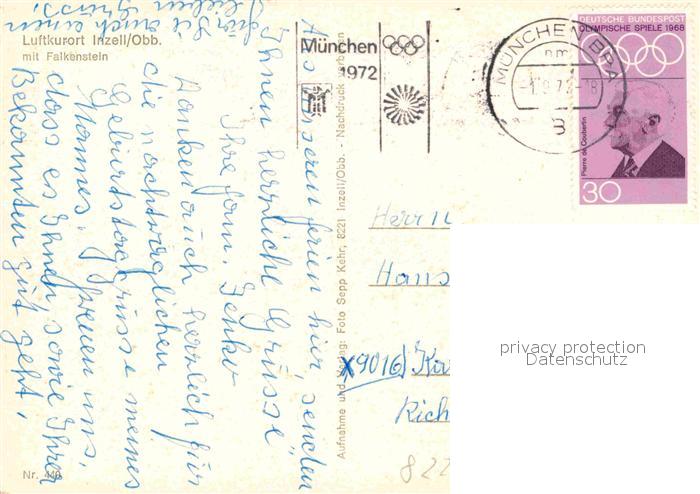 Luftkurort Inzell/Obb.
mit Falkenstein
Aus unseren ferien hier, senden
Ihnen herzliche Grüsse
Ihre fam.
Danken auch herzlich für
die nachträglichen
Geburtstagsgrüsse meines
Mannes. freuen uns,
dass es Ihnen sowie Ihren
Bekannten gut geht,
für Sie auch einen
lieben Gruss.
Nr. 440
Aufnahme und Verlag: Foto Sepp Kehr, 8221 Inzell/Obb. - Nachdruck verboten
München
1972
MÜNCHEN BRA
-1.9.72-18
3
DEUTSCHE BUNDESPOST
OLYMPISCHE SPIELE 1968
Pierre de Coubertin
30
Herrn
Hans
x9016)
Rich
822
privacy protection
Datenschutz